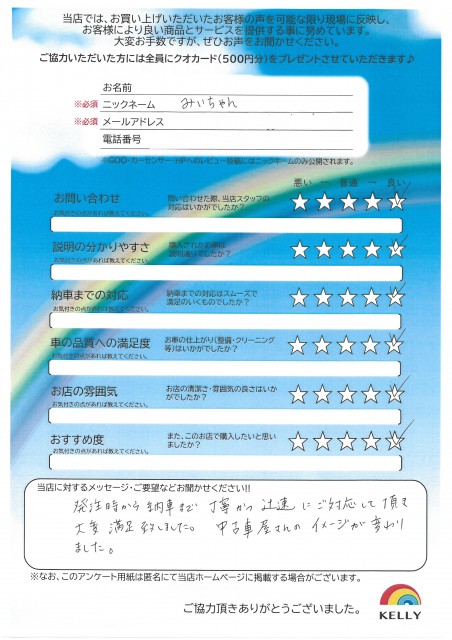 当店では、お買い上げいただいたお客様の声を可能な限り現場に反映し、
お客様により良い商品とサービスを提供する事に努めています。
大変お手数ですが、ぜひお声をお聞かせください。
ご協力いただいた方には全員にクオカード(500円分)をプレゼントさせていただきます♪
お名前
※必須 ニックネーム みいちゃん
※必須 メールアドレス
電話番号
※GOO・カーセンサー・HPへのレビュー掲載にはニックネームのみ公開されます。
悪い ー 普通 → 良い
お問い合わせ 問い合わせた際、当店スタッフの
お気付きの点があれば教えてください。 対応はいかがでしたか?
説明の分かりやすさ 購入されたお車は
お気付きの点があれば教えてください。 説明通りでしたか?
納車までの対応 納車までの対応はスムーズで
お気付きの点があれば教えてください。 満足のいくものでしたか?
車の品質への満足度 お車の仕上がり(整備・クリーニング
お気付きの点があれば教えてください。 等)はいかがでしたか?
お店の雰囲気 お店の清潔さ・雰囲気の良さはいか
お気付きの点があれば教えてください。 がでしたか?
おすすめ度 また、このお店で購入したいと思い
お気付きの点があれば教えてください。 ましたか?
当店に対するメッセージ・ご要望などお聞かせください!!
発注時から納車まで丁寧かつ迅速にご対応して頂き
大変満足致しました。中古車屋さんのイメージが変わり
ました。
※なお、このアンケート用紙は匿名にて当店ホームページに掲載する場合がございます。
ご協力頂きありがとうございました。
KELLY